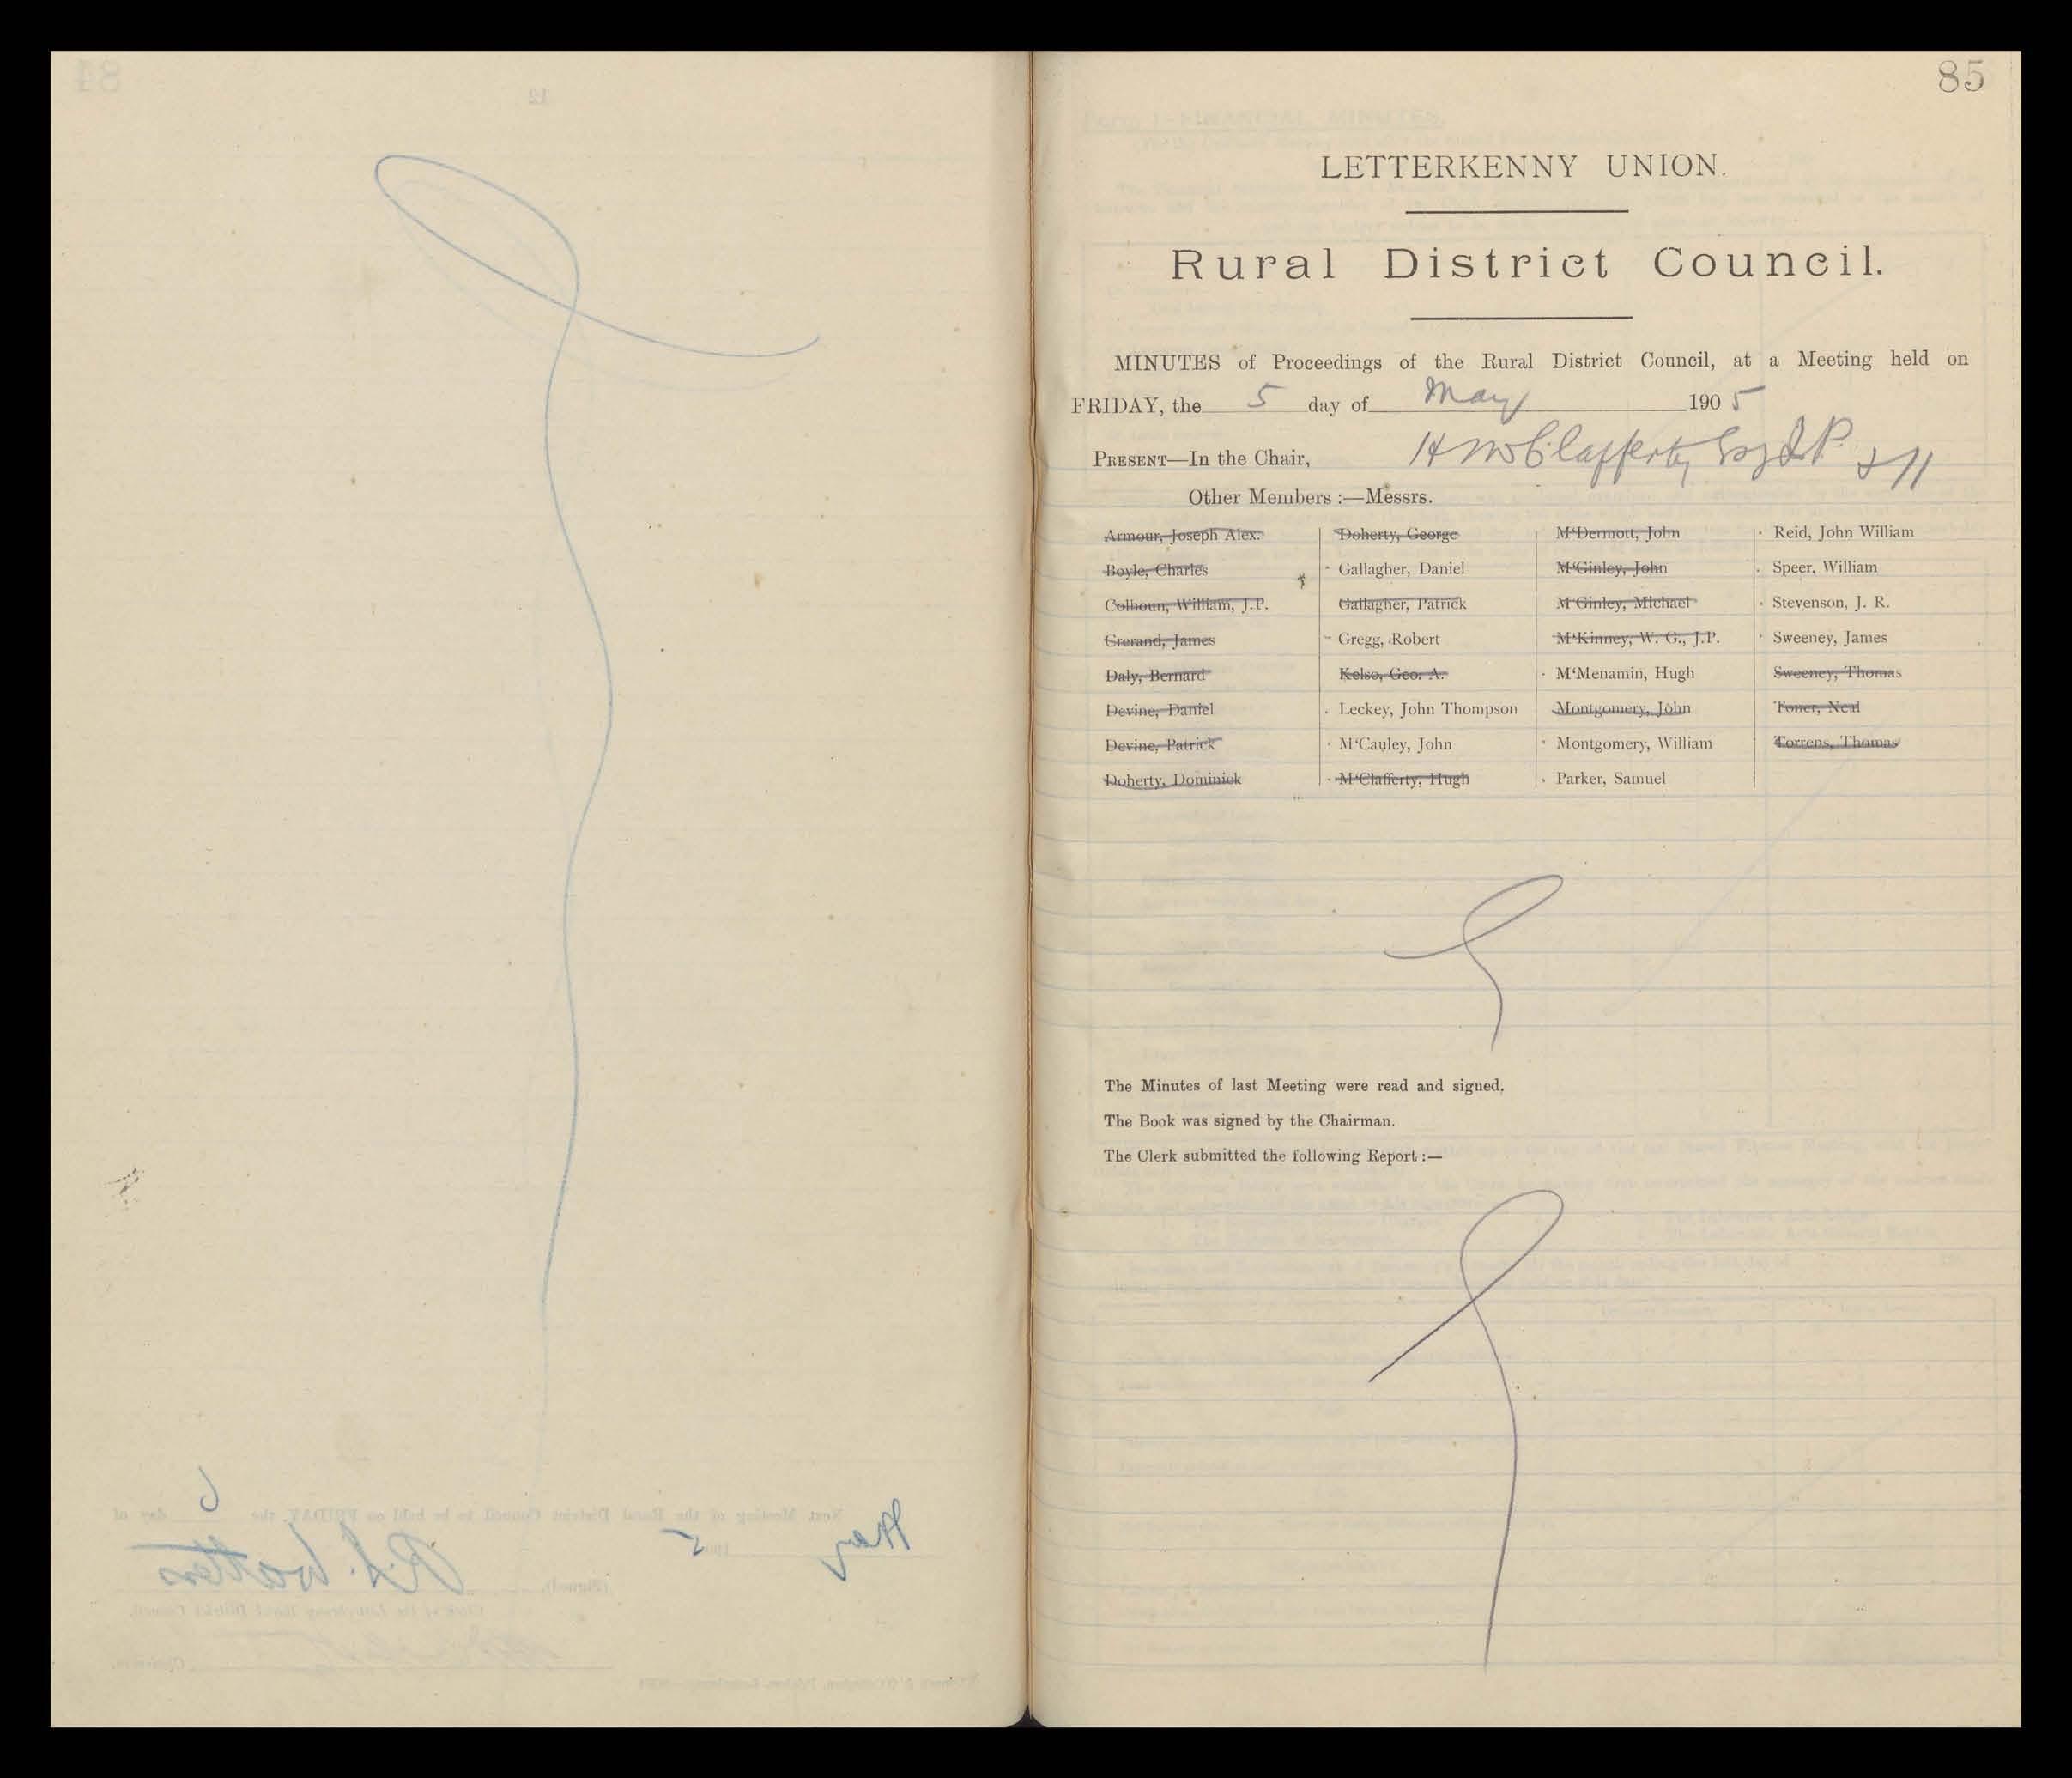 85
LETTERKENNY UNION.
Rural District Council.
MINUTES of Proceedings of the Rural District Council, at a Meeting held on
FRIDAY, the 5 day of May 1905
PRESENT—In the Chair, H McClafferty Esq J.P. & 11
Other Members :—Messrs.
Armour, Joseph Alex.
Boyle, Charles
Colhoun, William, J.P.
Crerand, James
Daly, Bernard
Devine, Daniel
Devine, Patrick
Doherty, Dominick
Doherty, George
Gallagher, Daniel
Gallagher, Patrick
Gregg, Robert
Kelso, Geo. A.
Leckey, John Thompson
M‘Cauley, John
M‘Clafferty, Hugh
M‘Dermott, John
M‘Ginley, John
M‘Ginley, Michael
M‘Kinney, W. G., J.P.
M‘Menamin, Hugh
Montgomery, John
Montgomery, William
Parker, Samuel
Reid, John William
Speer, William
Stevenson, J. R.
Sweeney, James
Sweeney, Thomas
Toner, Neal
Torrens, Thomas
The Minutes of last Meeting were read and signed.
The Book was signed by the Chairman.
The Clerk submitted the following Report :—